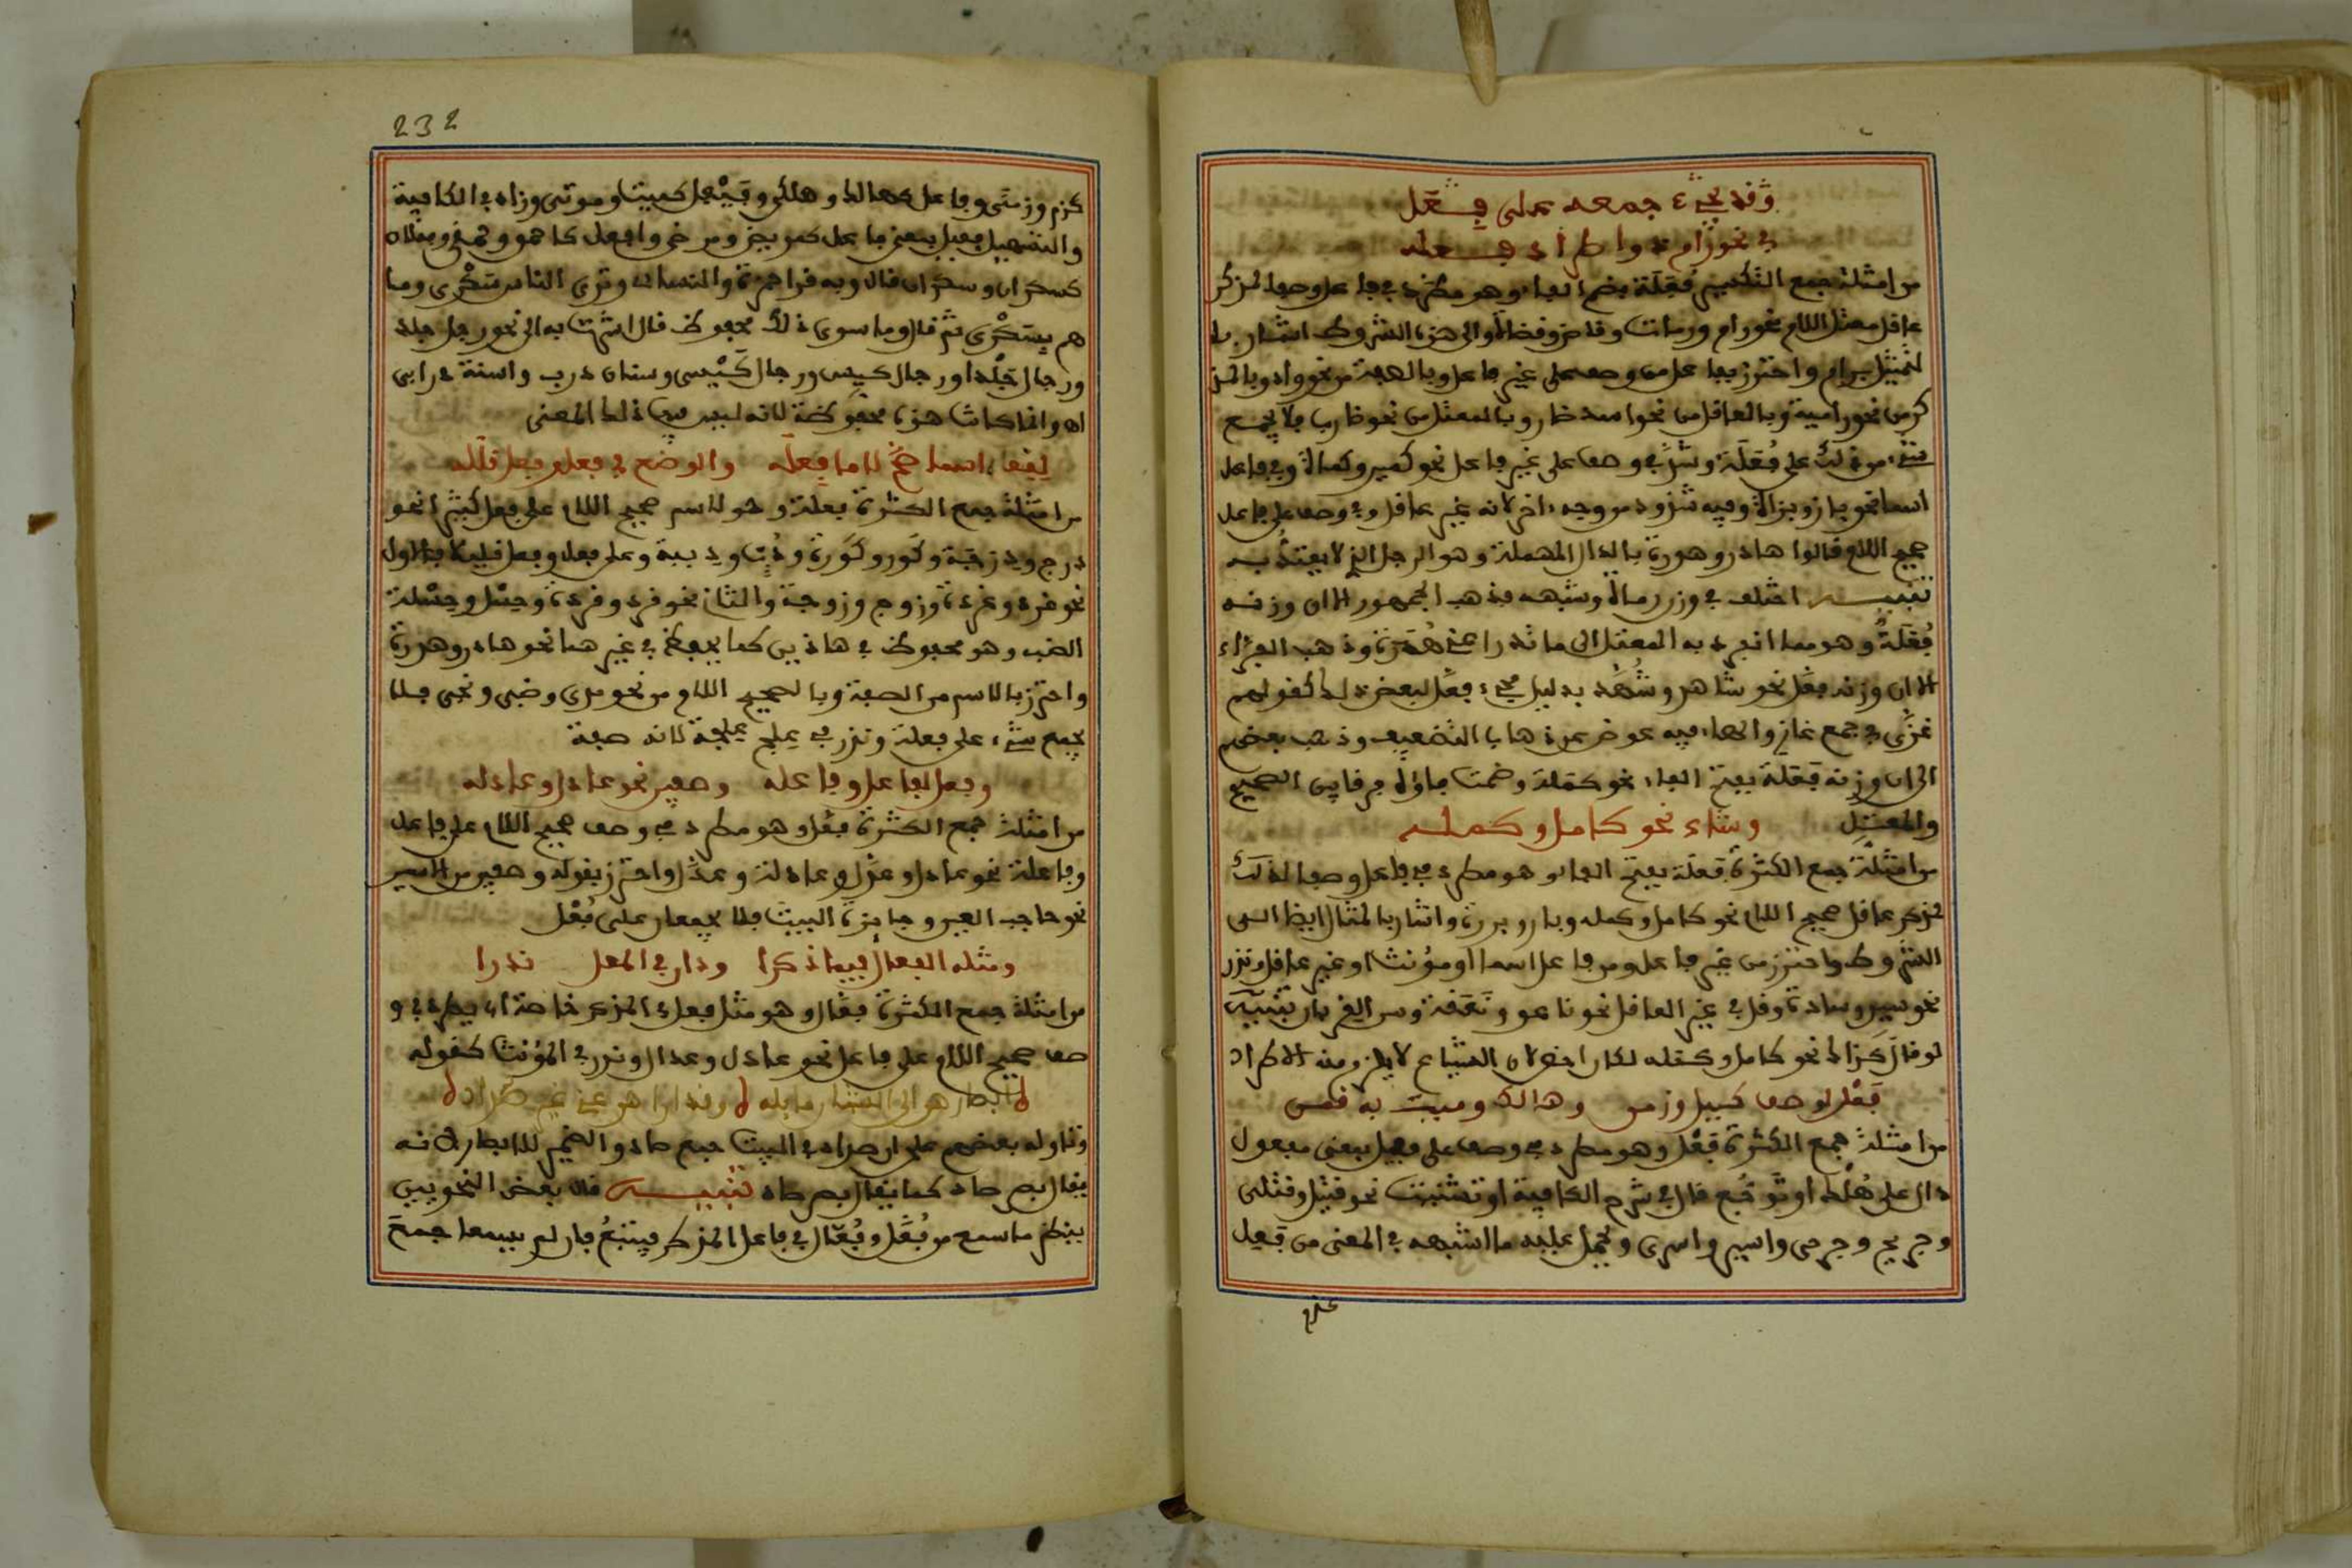 وقد يجيء جمعه على فعل
في نحو رام ذو اطراد فعله
من امثلة جمع التكسير فُعَلَة بضم الفاء وهو مطرد في فاعل وصفا لمذكر
عاقل معتل اللام نحو رام ورمات وقاض وقضاة والى هذه الشروط اشار با
لتمثيل برام واحترز بفاعل من وصف على غير فاعل وبالصفة من نحو واد وبالمذ
كر من نحو رامية وبالعاقل من نحو اسد ضار وبالمعتل من نحو ضارب فلا يجمع
شيء من ذلك على فُعَلَة وشذ في وصف على غير فاعل نحو كمي وكماة وفي فاعل
اسما نحو باز وبزاة وفيه شذوذ من وجه اخر لانه غير عاقل وفي وصف على فاعل
صحيح اللام قالوا هادر وهدرة بالدال المهملة وهو الرجل الذي لا يعتد به
تنبيه اختلف في وزن رماة وشبهه فذهب الجمهور الى ان وزنه
فُعَلَةٌ وهو مما انفرد به المعتل الى ما ندر اعني هُدَرة وذهب الفراء
الى ان وزنه فعّل نحو شاهر وشُهَّد بدليل مجيء فعّل لبعض ذلك كقولهم
غزّى في جمع غاز والهاء فيه عوض عن ذهاب التضعيف وذهب بعضهم
الى ان وزنه فَعَلة بفتح الفاء نحو كمَلة وضمت فاؤه فرقا بين الصحيح
والمعتل وشاع نحو كامل وكمله
من امثلة جمع الكثرة فَعَلَة بفتح الفاء وهو مطرد في فاعل وصفا لذلك
لمذكر عاقل صحيح اللام نحو كامل وكمله وبار وبررة واشار بالمثال ايضا الى
الشروط واحترز من غير فاعل ومن فاعل اسما او مؤنثا او غير عاقل وندر
نحو سيد وسادة وقل في غير العاقل نحو ناعق ونَعَقة وسر الغربان تنبيه
لو قال كذاك نحو كامل وكمله لكان احسن لان الشياع لا يلزم منه الاطراد
فَعْلى لوصف كقتيل وزمن وهالك وميت به قمن
من امثلة جمع الكثرة فَعْلى وهو مطرد في وصف على فعيل بمعنى مفعول
دال على هُلْك او توجّع قال في شرح الكافية او تشتيت نحو قتيل وقتلى
وجريح وجرحى واسير واسرى ويحمل عليه ما اشبهه في المعنى من فعيل
232
كزمن وزمنى وفاعل كهالك وهلكى وفَيْعِل كميت وموتى وزاد في الكافية
والتسهيل فعيل بمعنى فاعل كمريض ومرضى وافعل كاحمق وحمقى وفعلان
كسكران وسكرى قال وبه قرا حمزة والكساي وترى الناس سَكْرى وما
هم بِسَكْرى ثم قال وما سوى ذلك محفوظ قال اشرت به الى نحو رجل جلد
ورجال جَلْدا ورجال كيس ورجال كَيْسى وسنان ذرب واسنة ذرابى
اه وانما كانت هذه محفوظة لانه ليس فيها ذلك المعنى
لفعل اسما صح لاما فعله والوضع في فعل وفعل قلله
من امثلة جمع الكثرة فعلة وهو لاسم صحيح اللام على فعل كثيرا نحو
درج ودِرَجة وكُور وكِوَرة ودُب ودِببة وعلى فعل وفعل قليلا فالاول
نحو غرد وغردة وزوج وزوجة والثاني نحو قرد وقردة وحِسْل وحِسَلة
الضب وهو محفوظ في هاذين كما يحفظ في غير هما نحو هادر وهدرة
واحترز بالاسم من الصفة وبالصحيح اللام من نحو مدى وضبى ونحى فلا
يجمع شيء على فعلة وندر في علج علجة لانه صفة
وفعل لفاعل وفاعله وصفين نحو عادل وعادله
من امثلة جمع الكثرة فعّل وهو مطرد في وصف صحيح اللام على فاعل
وفاعلة نحو عادل وعذّل وعادلة وعذّل واحترز بقوله وصفين من الاسمين
نحو حاجب العين وجايزة البيت فلا يجمعان على فُعَّل
ومثله الفعال فيما ذكرا وذان في المعل ندرا
من امثلة جمع الكثرة فعّال وهو مثل فعل في المذكر خاصة اي يطرد في و
صف صحيح اللام على فاعل نحو عادل وعدال وندر في المؤنث كقوله
ابصارهن الى الشبان مايلة وقد اراهن عني غير صداد
وتاوله بعضهم على ان صداد في البيت جمع صاد والضمير للابصار لانه
يقال بصر صاد كما يقال بصر حاد تنبيه قال بعض النحويين
ينظر ما سمع من فُعَّل وفُعّال في فاعل المذكر فيتبعُ فان لم يسمعا جمع